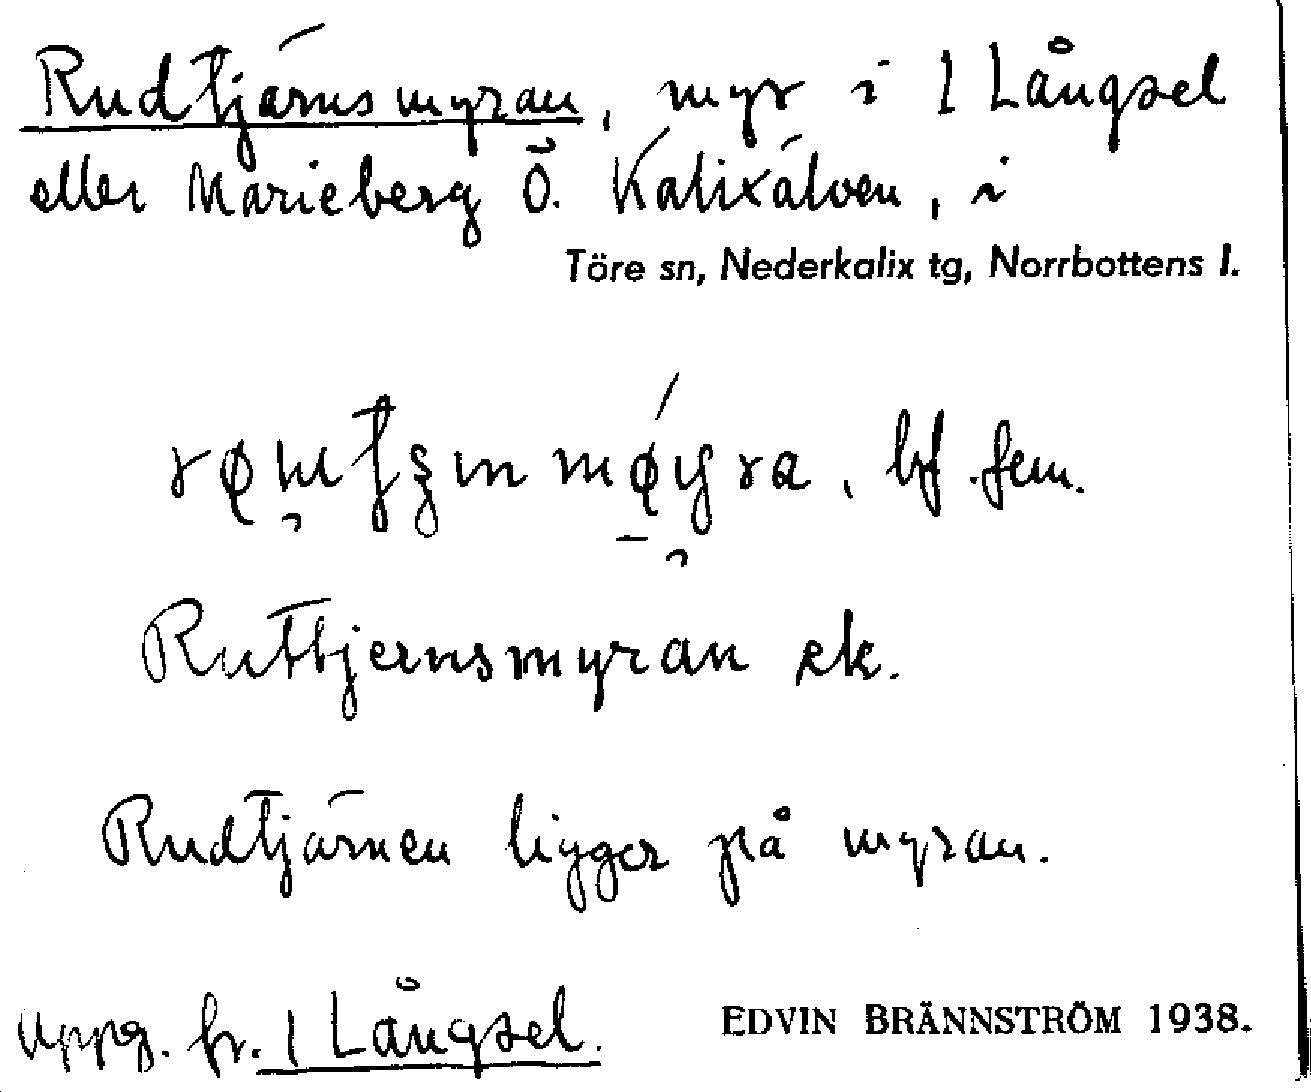 Rudtjärnsmyran, myr i 1 Långsel
eller Marieberg Ö. Kalixälven, i
Töre sn, Nederkalix tg, Norrbottens l.
bf. fem.
Ruttjernsmyran ek.
Rudtjärnen ligger på myran.
Uppg. fr. 1 Långsel. EDVIN BRÄNNSTRÖM 1938.